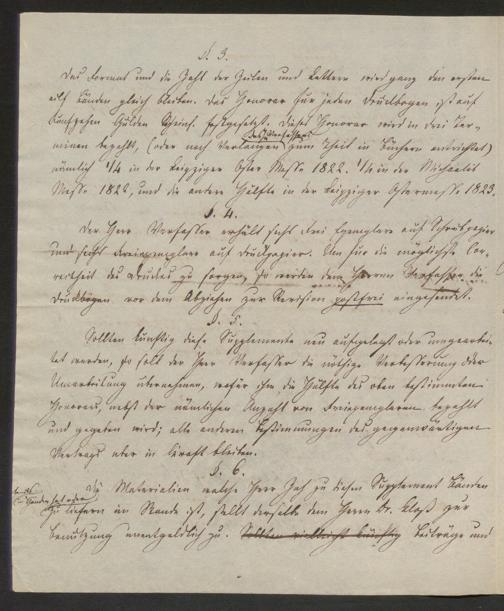 §. 3.
Das Format und die Zahl der Zeilen und Lettern wird ganz den ersten
eilf Bänden gleich bleiben. Das Honorar für jeden Druckbogen ist auf
Gulden Rheinl. festgesetzt. Dieses Honorar wird in drei Ter-
des Verfassers
minen bezahlt, (oder nach Verlangen zum Theil in Büchern entrichtet)
nämlich 1/4 in der Leipziger Oster Messe 1822. 1/4 in der Michaelis
Messe 1822, und die andere Hälfte in der Leipziger Ostermesse 1823.
§. 4.
Der Herr Verfasser erhält sechs Exemplare auf Schreibpapier
und sechs Freiexemplare auf Druckpapier. Um für die möglichste Cor-
rectheit des Druckes zu sorgen, so werden dem Herrn Verfasser die
Druckbogen vor dem Abziehen zur Revision postfrei eingesendet.
§. 5.
Sollten künftig diese Supplemente neu aufgelegt oder umgearbei-
tet werden, so soll der Herr Verfasser die nöthige Verbesserung oder
Umarbeitung übernehmen, wofür ihm die Hälfte des oben bestimmten
Honorars, nebst der nämlichen Anzahl von Freiexemplaren bezahlt
und gegeben wird; alle anderen Bestimmungen des gegenwärtigen
Vertrags aber in Kraft bleiben.
§. 6.
Die Materialien welche Herr zu diesen Supplement Bänden
zu liefern im Stande ist, stellt derselbe dem Herrn Dr. zur
Benutzung unentgeldlich zu. Sollten vielleicht künftig Beiträge und